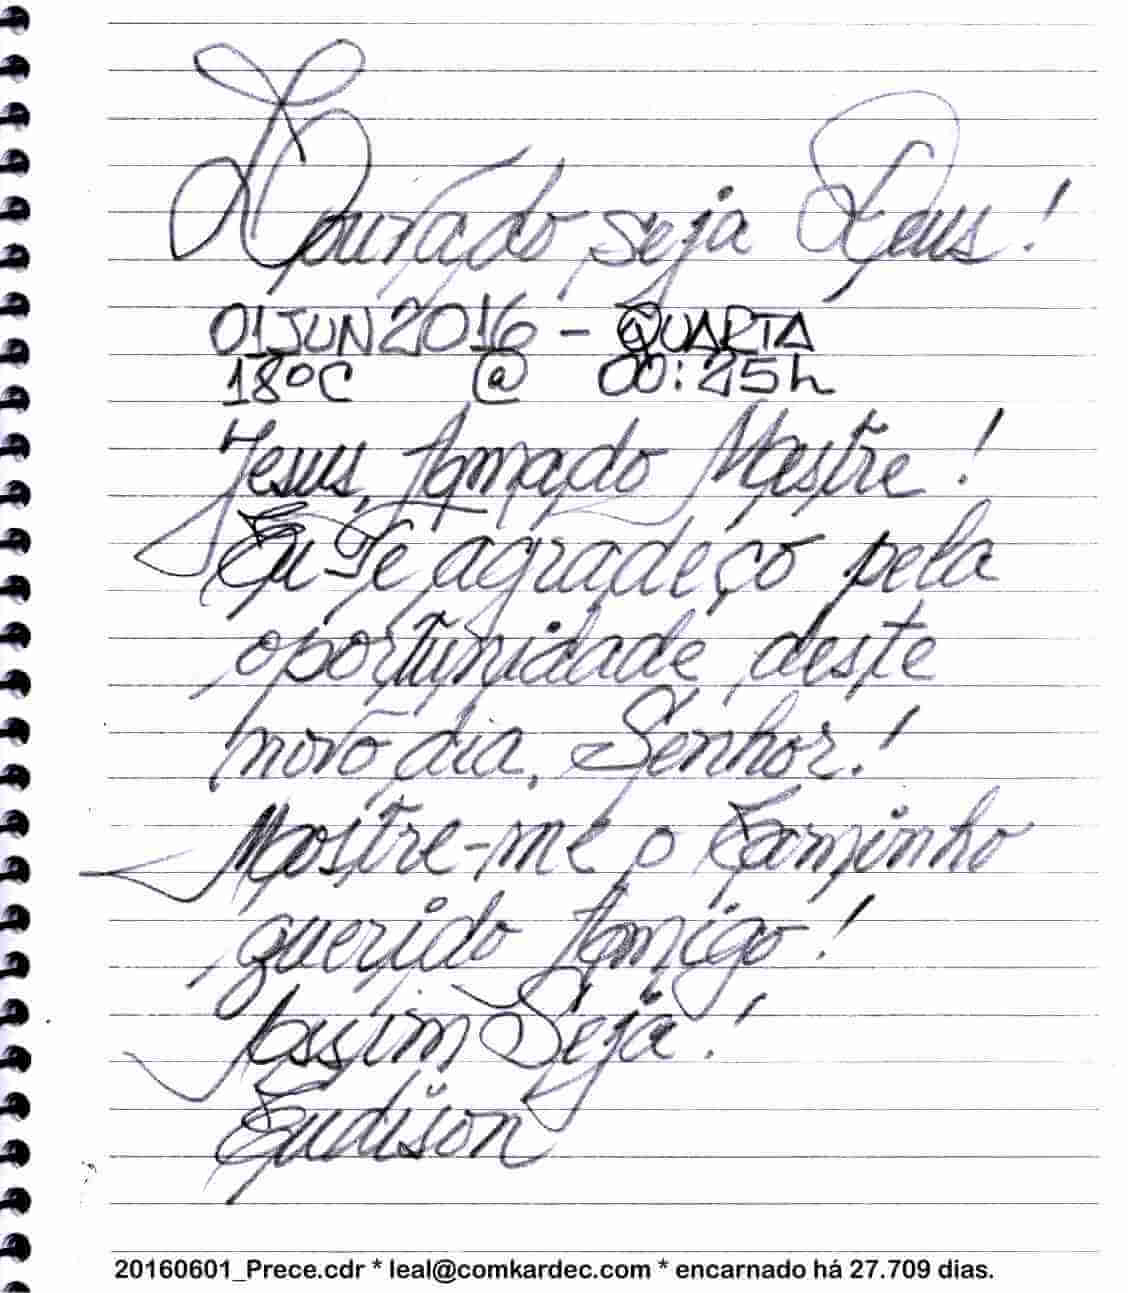 Louvado seja Deus!
01JUN2016 - QUARTA
18ºC @ 00:25h
Jesus, Amado Mestre!
Eu Te agradeço pela
oportunidade deste
novo dia, Senhor!
Mostre-me o Caminho
querido Amigo!
Assim Seja!
Eudison
20160601_Prece.cdr * leal@comkardec.com * encarnado há 27.709 dias.